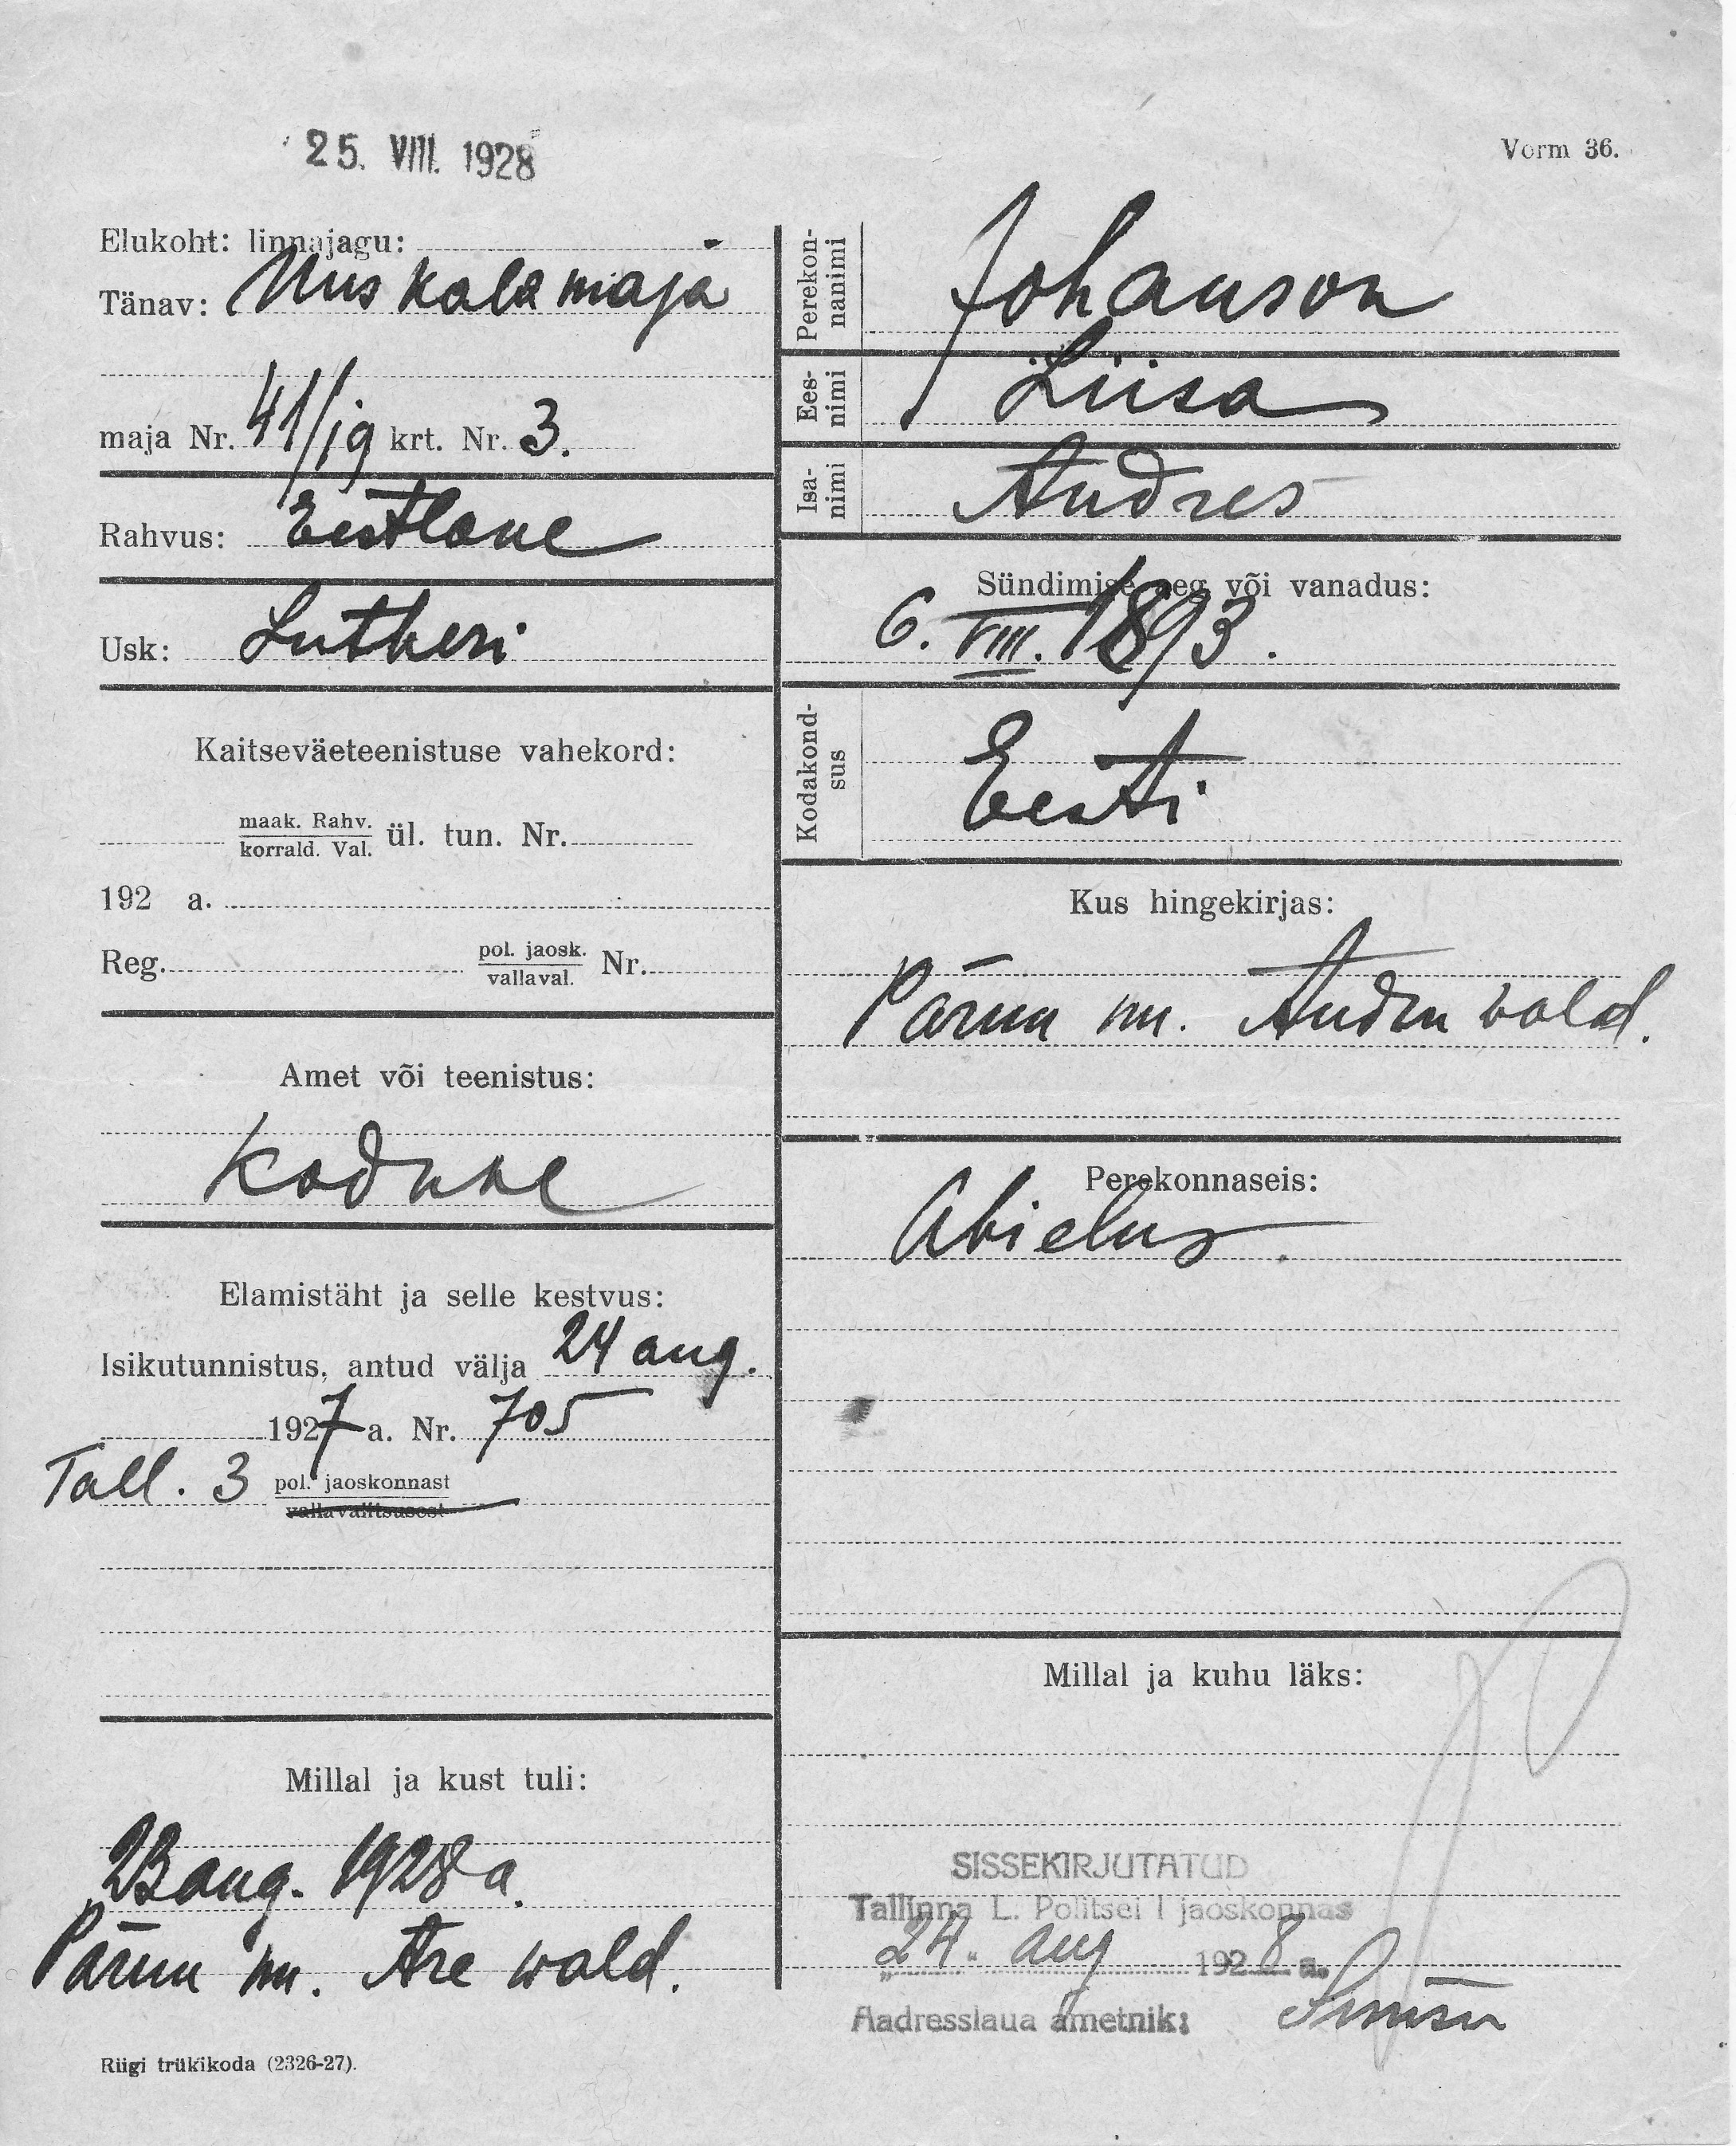 25. VIII. 1928
Vorm 36.
Elukoht: linnajagu: -
Tänav: Uus kalamaja
maja Nr. 41/19 krt. Nr. 3.
Rahvus: Eestlane
Usk: Lutheri
Kaitseväeteenistuse vahekord:
maak. Rahv.
korrald. Val. ül. tun. Nr.
192 a.
Reg. pol. jaosk.
vallaval. Nr.
Amet või teenistus:
Kodune
Elamistäht ja selle kestvus:
Isikutunnistus, antud välja 24 aug.
1927 a. Nr. 705
Tall. 3 pol. jaoskonnast
vallavalitsusest
Millal ja kust tuli:
23 aug. 1928 a.
Pärnu m. Are wald.
Riigi trükikoda (2326-27).
Perekon-
nanimi
Johanson
Ees-
nimi
Liisa
Isa-
nimi
Andres
Sündimise aeg või vanadus:
6. VIII. 1893.
Kodakond-
sus
Eesti
Kus hingekirjas:
Pärnu m. Audru wald.
Perekonnaseis:
Abielus.
Millal ja kuhu läks:
SISSEKIRJUTATUD
Tallinna L. Politsei I jaoskonnas
„24." aug 1928 a.
Aadresslaua ametnik: